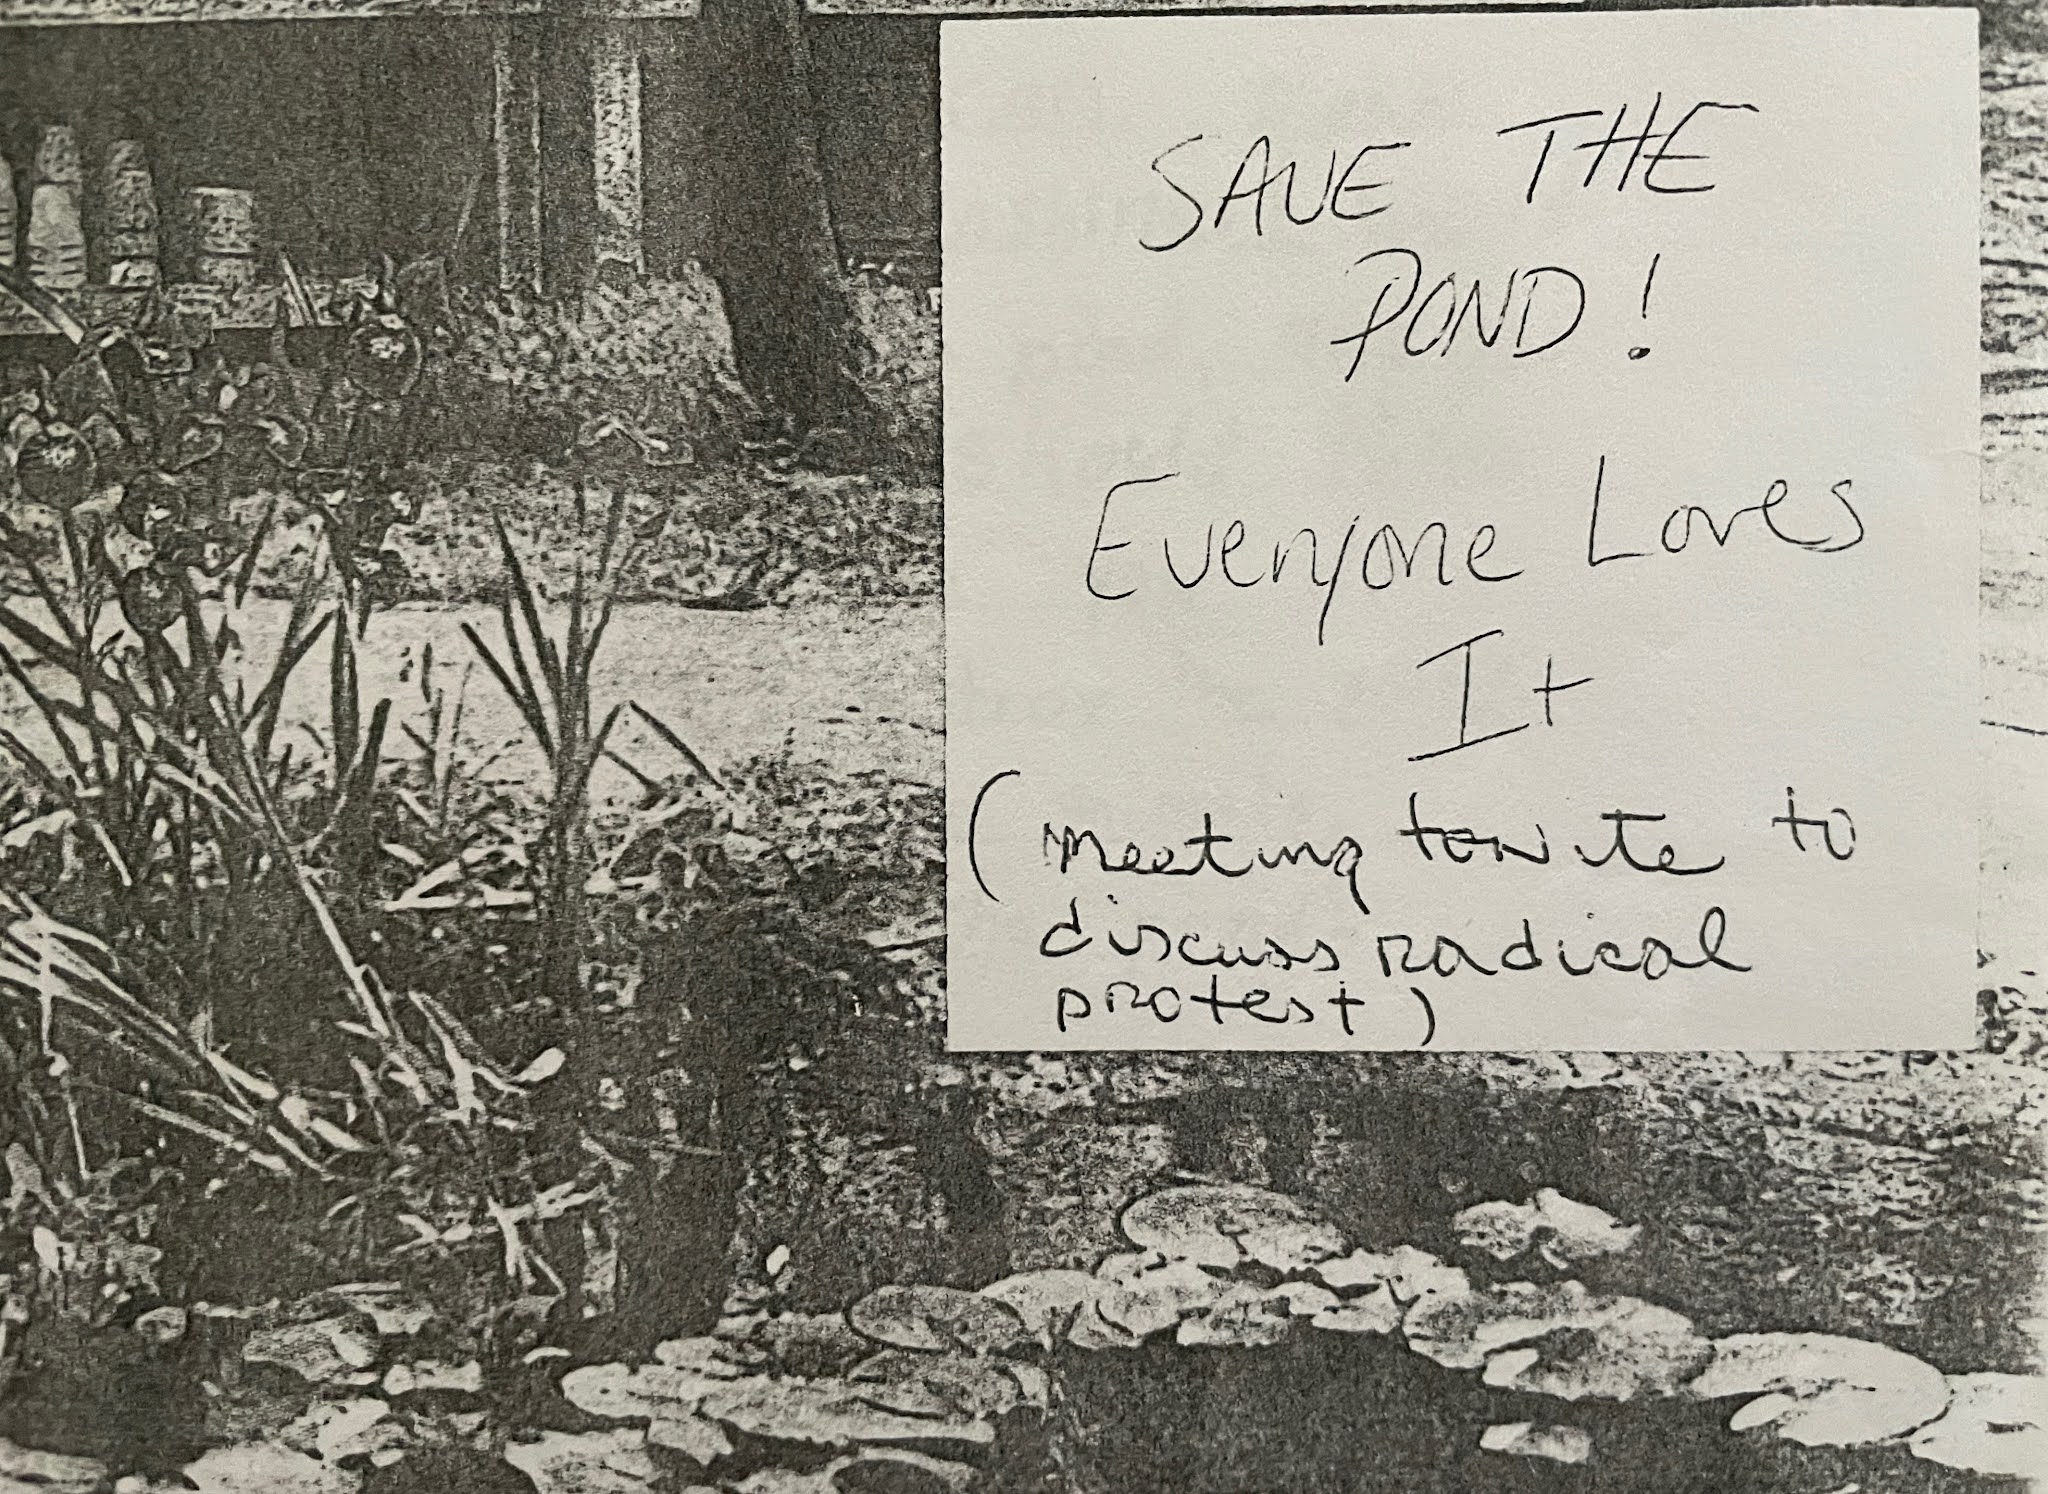 SAVE THE
POND!
Everyone Loves
It
(meeting tonite to
discuss radical
protest)